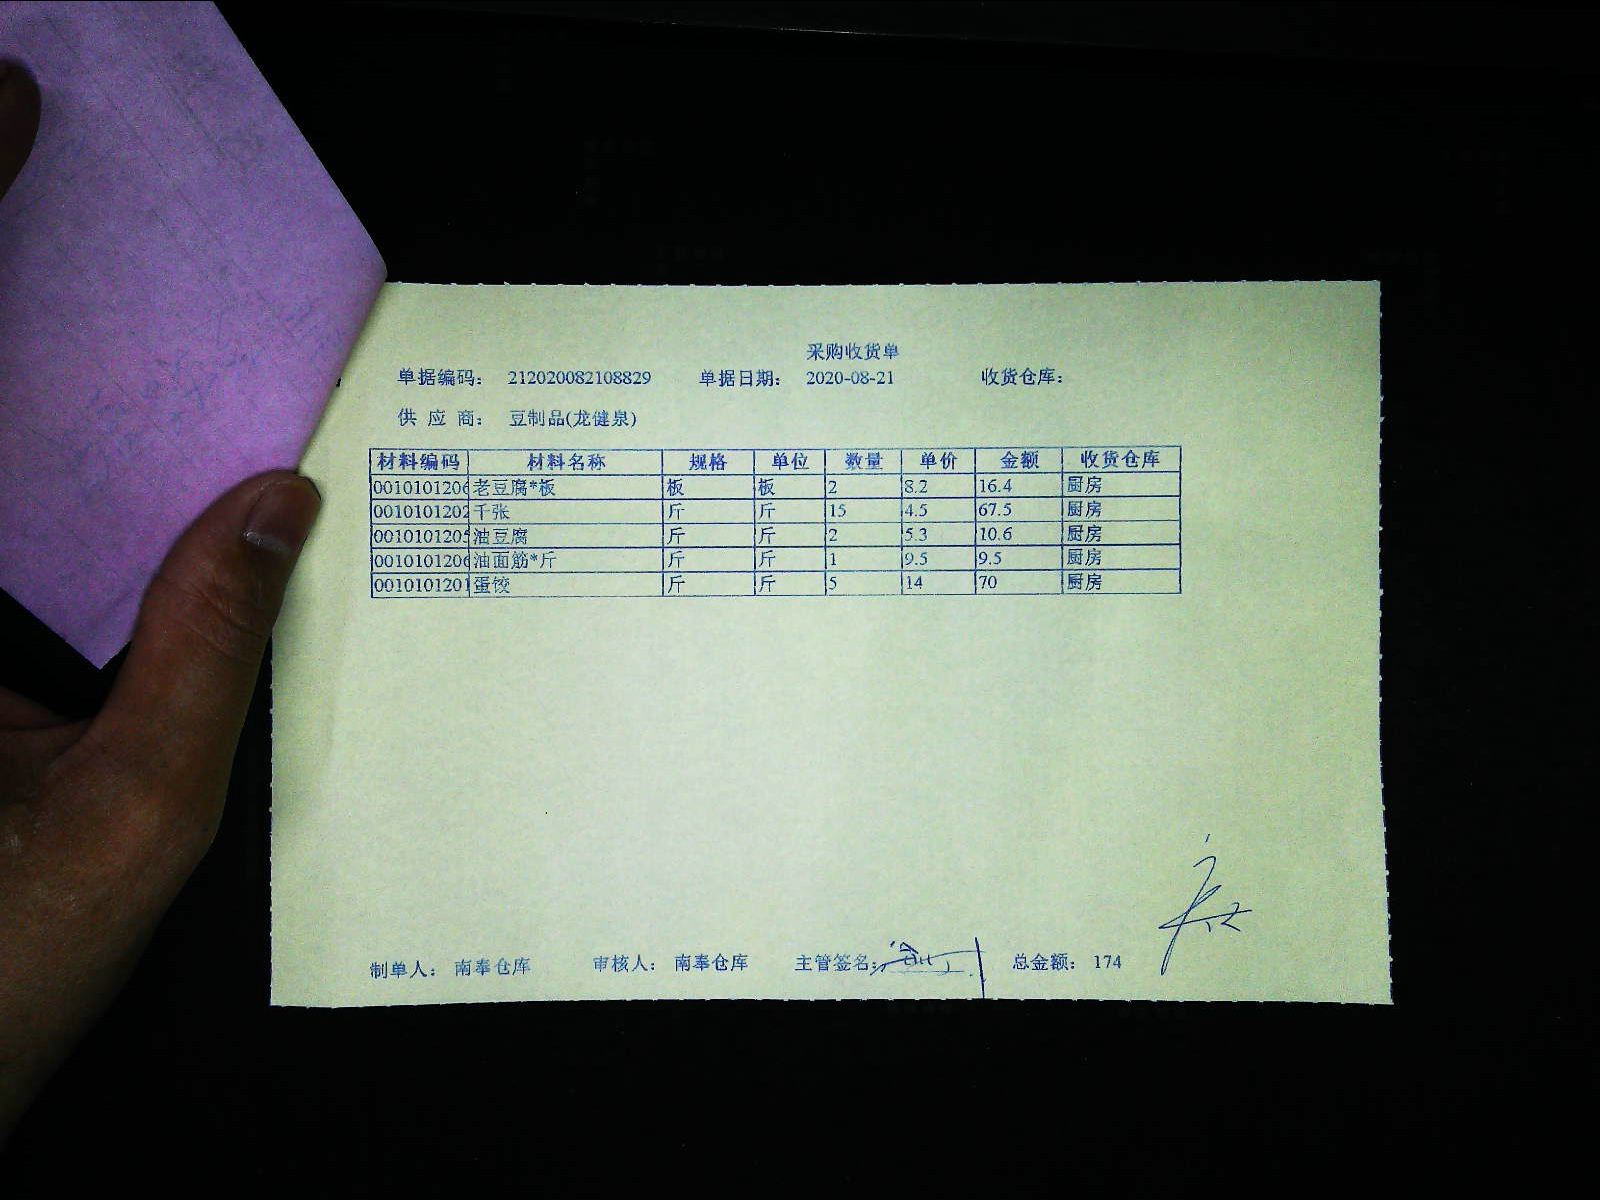 采购收货单
单据编码: 212020082108829 单据日期: 2020-08-21 收货仓库:
供应商: 豆制品(龙健泉)
材料编码 材料名称 规格 单位 数量 单价 金额 收货仓库
0010101206 老豆腐*板 板 板 2 8.2 16.4 厨房
0010101202 千张 斤 斤 15 4.5 67.5 厨房
0010101205 油豆腐 斤 斤 2 5.3 10.6 厨房
0010101206 油面筋*斤 斤 斤 1 9.5 9.5 厨房
0010101201 蛋饺 斤 斤 5 14 70 厨房
制单人: 南奉仓库 审核人: 南奉仓库 主管签名: 总金额: 174